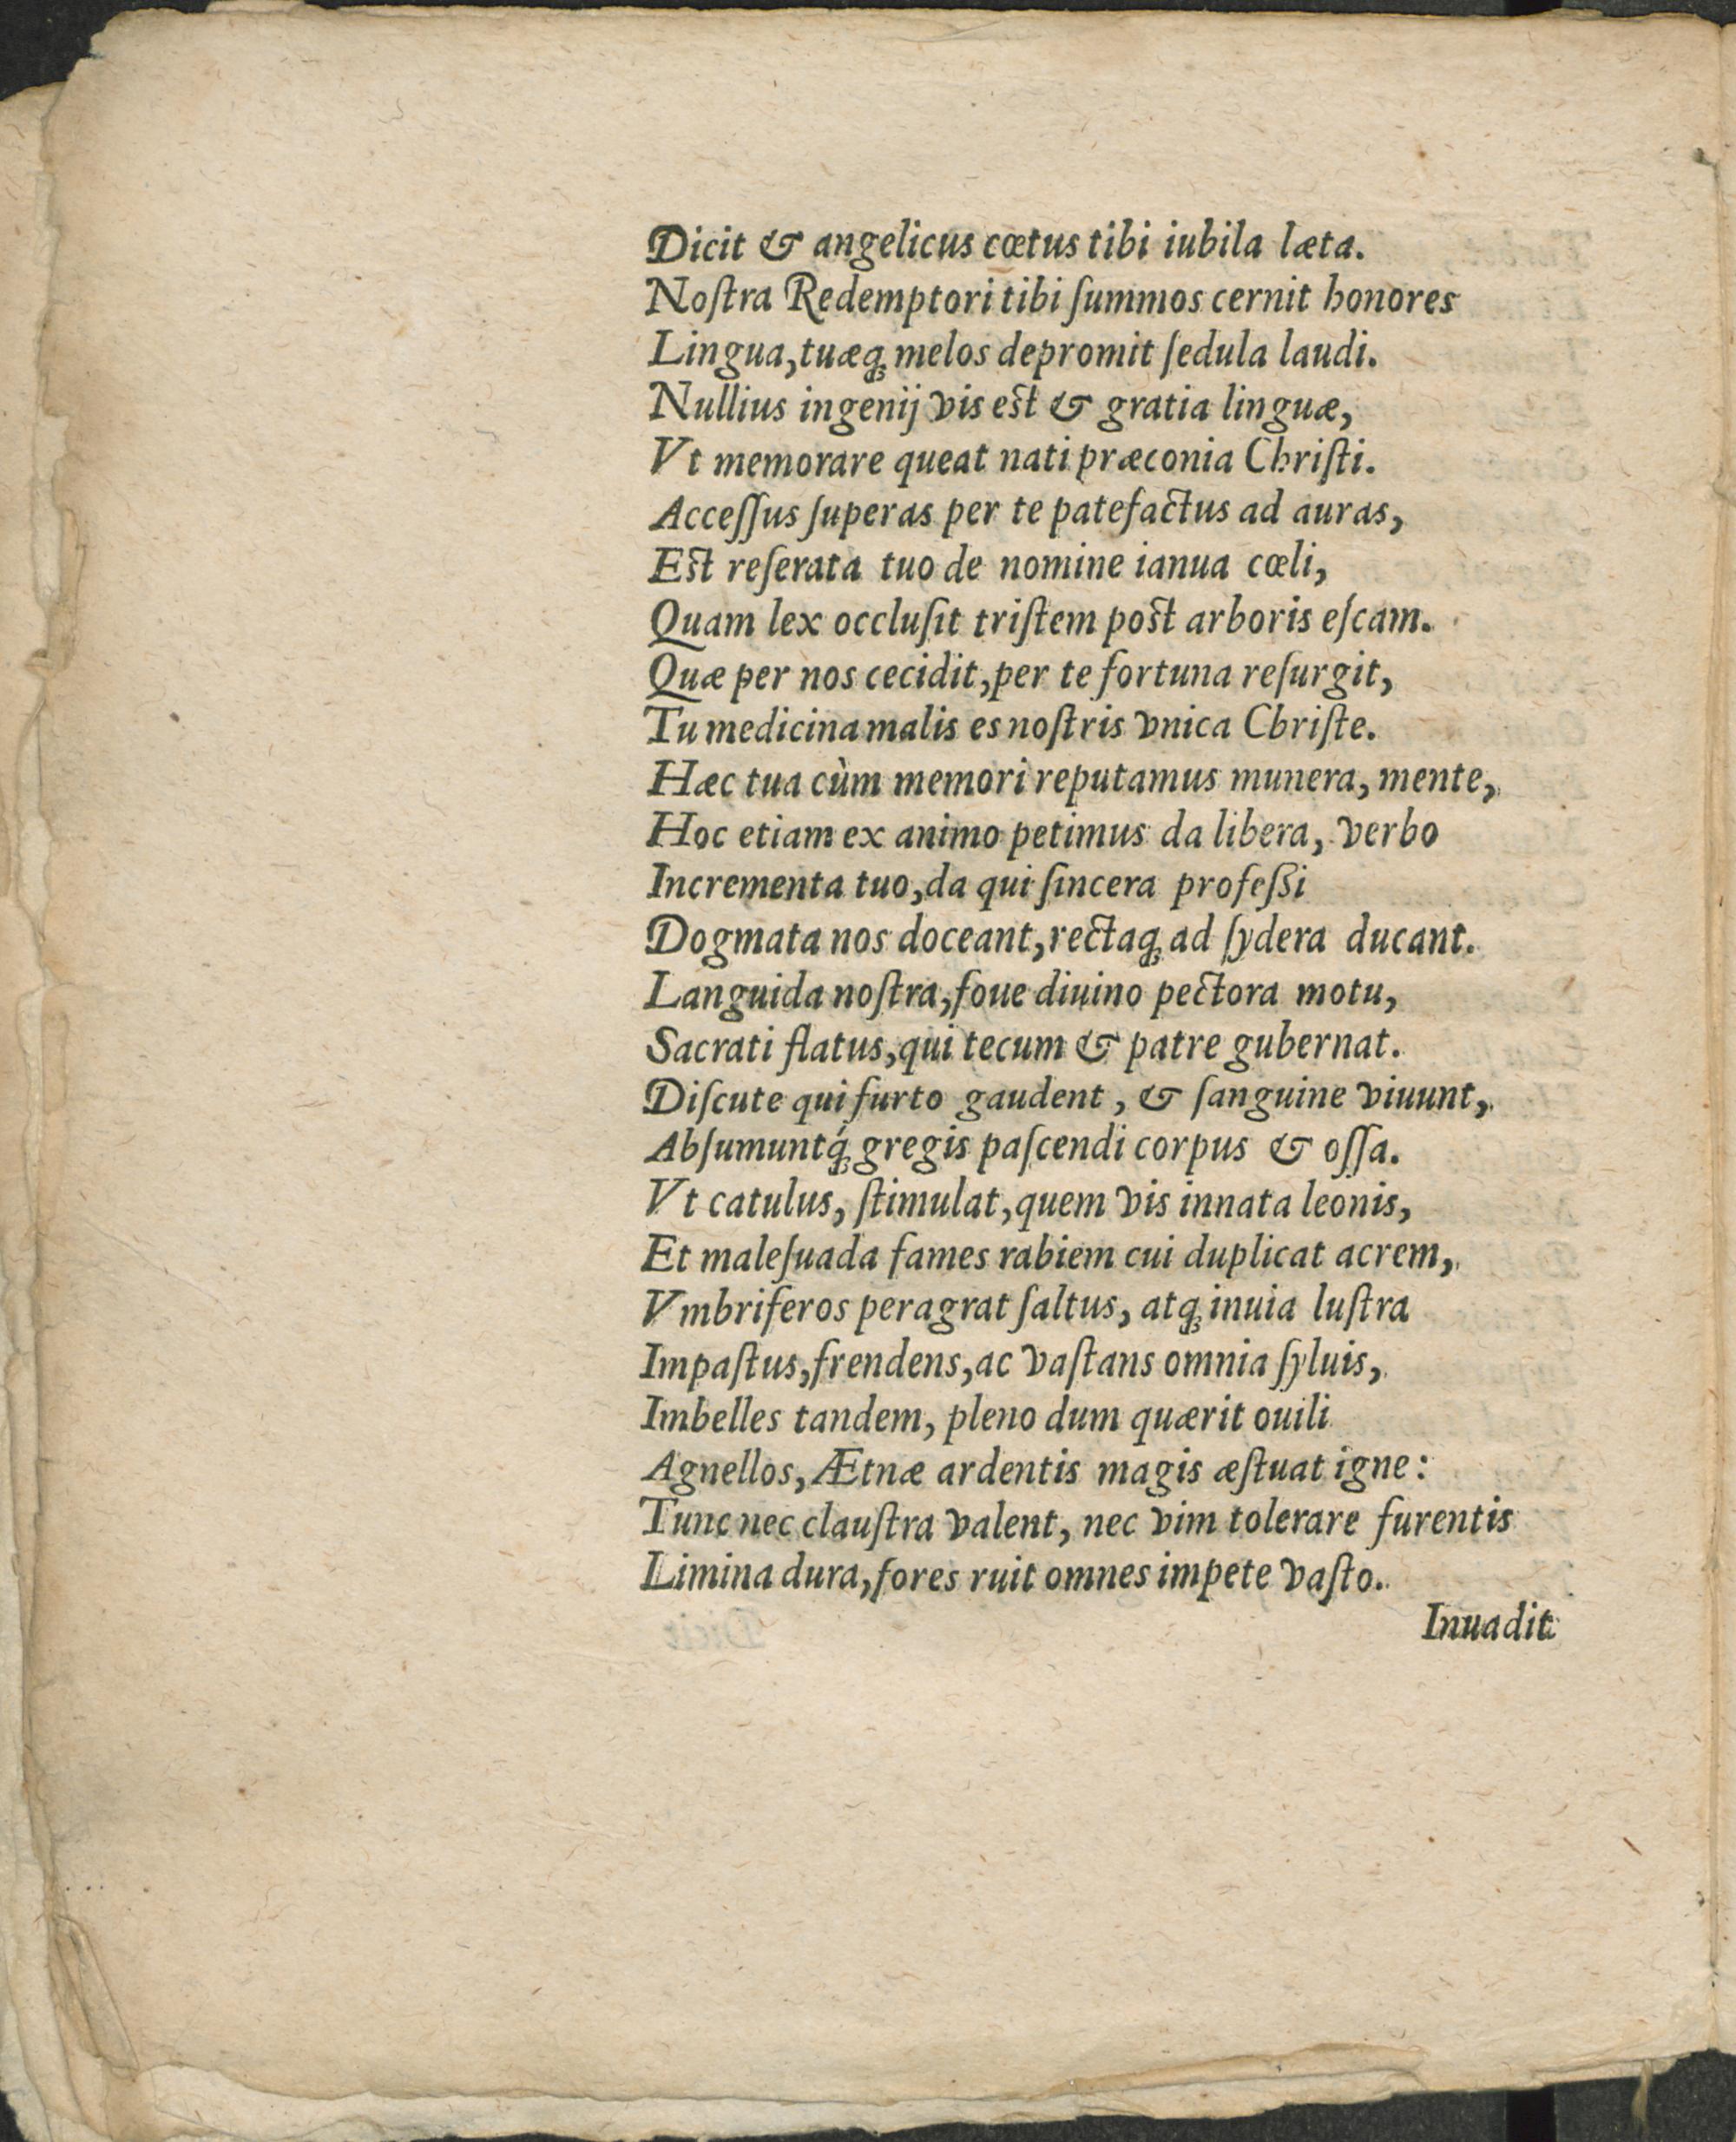 Dicit & angelicus cœtus tibi iubila læta.
Noſtra Redemptori tibi ſummos cernit honores
Lingua, tuæq; melos depromit ſedula laudi.
Nullius ingenij vis eſt & gratia linguæ,
Vt memorare queat nati præconia Chriſti.
Acceſſus ſuperas per te patefactus ad auras,
Eſt reſerata tuo de nomine ianua cœli,
Quam lex occluſit triſtem poſt arboris eſcam.
Quæ per nos cecidit, per te fortuna reſurgit,
Tu medicina malis es noſtris vnica Chriſte.
Hæc tua cùm memori reputamus munera, mente,
Hoc etiam ex animo petimus da libera, verbo
Incrementa tuo, da qui ſincera profeßi
Dogmata nos doceant, rectaq; ad ſydera ducant.
Languida noſtra, foue diuino pectora motu,
Sacrati flatus, qui tecum & patre gubernat.
Diſcute qui furto gaudent, & ſanguine viuunt,
Abſumuntq́; gregis paſcendi corpus & oſſa.
Vt catulus, ſtimulat, quem vis innata leonis,
Et maleſuada fames rabiem cui duplicat acrem,
Vmbriferos peragrat ſaltus, atq; inuia luſtra
Impaſtus, frendens, ac vaſtans omnia ſyluis,
Imbelles tandem, pleno dum quærit ouili
Agnellos, Ætnæ ardentis magis æſtuat igne:
Tunc nec clauſtra valent, nec vim tolerare furentis
Limina dura, fores ruit omnes impete vaſto.
Inuadit